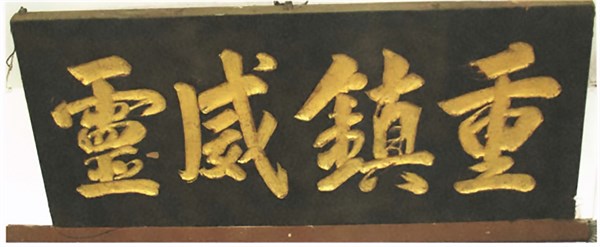 重鎮威靈